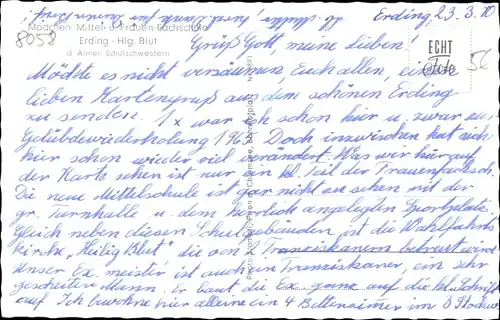 Erding, 23.3.70
Mädchen-Mittel- u. Frauen-Fachschule
8058
Erding - Hlg. Blut
d. Armen Schulschwestern
Grüß Gott, meine Lieben.
ECHT
Foto
56
Möchte es nicht versäumen, Euch allen, einen
lieben Kartengruß aus dem schönen Erding
zu senden. 1x war ich schon hier u. zwar zur
Gelübdewiederholung 1963. Doch inzwischen hat sich
hier schon wieder viel verändert. Was wir hier auf
der Karte sehen ist nur ein kl. Teil der Frauenfachsch.
Die neue Mittelschule ist gar nicht zu sehen mit der
gr. Turnhalle u. dem herrlich angelegten Sportplatz.
Gleich neben diesen Schulgebäuden ist die Wallfahrts
kirche "Heilig Blut" die von 2 Franziskanern betreut wird.
Unser Ex. meister ist auch ein Franziskaner, ein sehr
gescheiter Mann. Er baut die Ex. ganz auf die hl. Schrift
auf. Ich bewohne hier alleine ein 4 Bettenzimmer im 3. Stock